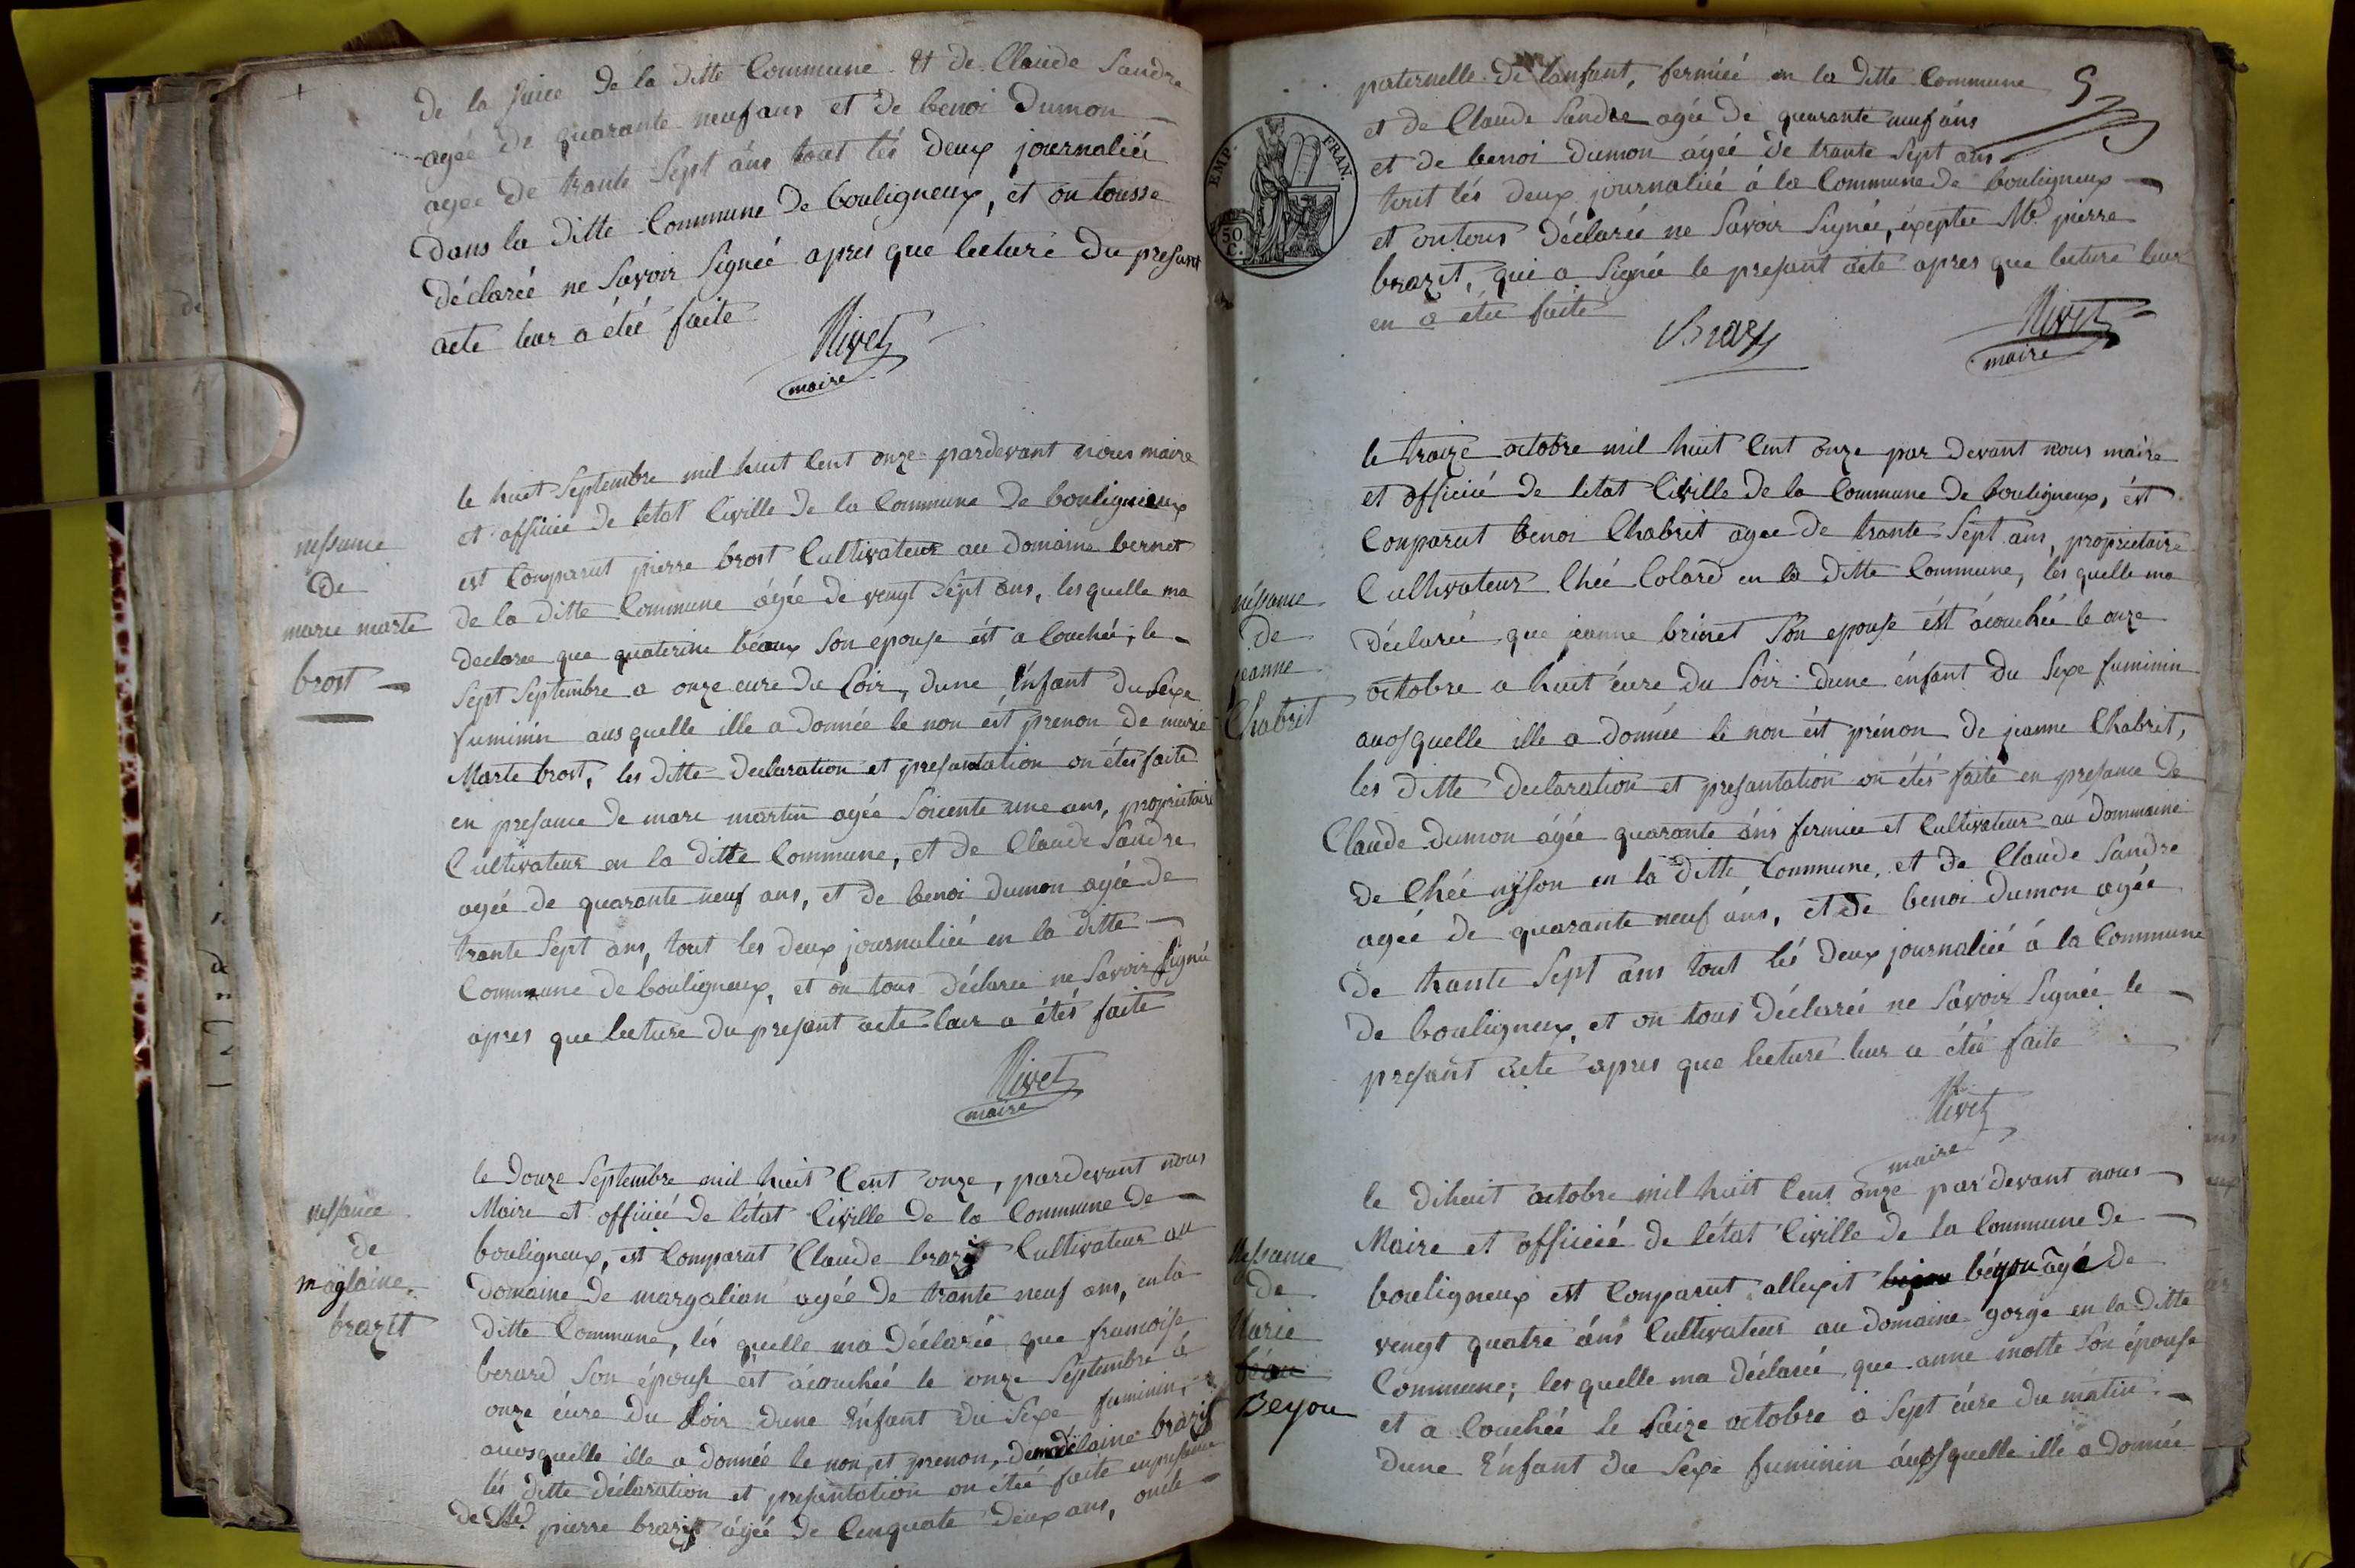 de la juire de la ditte Commune Et de Claude Sandre
agée de quarante neuf ans et de benoi Dumon
agée de trante Sept ans tout lés deux journaliée
dans la ditte Commune de bouligneux, et on tousse
déclareé ne Savoir Signeé apres que lecture du presant
acte leur a éteé faite
Rivet
maire
nessance
de
marie marte
brost
le huit Septembre mil huit Cent onze pardevant nous maire
et officiée de letat Civille de la Commune de bouligneux
est Comparut pierre brost Cultivateur au domaine bernet
de la ditte Commune ágée de vengt Sept ans, les quelle ma
declarée que quaterine béaux Son epouse ést a Couchéé, le
Sept Septembre a onze eure du Soir, dune Énfant du Sexe
fuminin aus quelle ille a donnée le non ést prenon de marie
Marte brost, les ditte declaration et presantation on étés faite
en presance de marc martin agée Soicente une ans, propriétaire
Cultivateur en la ditte Commune, et de Claude Sandre
agéé de quarante neuf ans, et de benoi dumon agée de
trante Sept ans, tout les deux journalieé en la ditte
Commune de bouligneux, et on tous déclareé ne Savoir Signé
apres que lecture du presant acte leur a étés faite
Rivet
maire
nessance
de
maglaine
brazit
le douze Septembre mil huit Cent onze, pardevant nous
Maire et officieé de létat Civille de la Commune de
bouligneux, est Comparut Claude brazit Cultivateur au
domaine de margalian agéé de trante neuf ans, en la
ditte Commune, lés quelle ma déclareé que francoise
berard Son épouse ést acouchéé le onze Septembre á
onze éure du Soir dune Énfant du Sexe fuminin
auosquelle ille a donneé le non, et prenon, de madelaine brazit
lés ditte déclaration et presantation on éteé faite en presance
de Med pierre brazit ágéé de Cenquate deux ans, oncle
EMP. FRAN.
50
C.
5
paternelle de lanfant, fermiéé en la ditte Commune
et de Claude Sandre agéé de quarante neuf áns
et de benoi dumon ágéé de trante Sept ans
tout lés deux journalieé á la Commune de bouligneux
et on tous déclareé ne Savoir Signéé, éxeptée Md pierre
brazit, qui a Signée le presant acte apres que lecture leur
en a éteé faite
Brazy
Rivet
maire
néssance
de
jeanne
Chabrit
le traize octobre mil huit Cent onze par devant nous maire
et officieé de letat Civille de la Commune de bouligneux, ést
Comparut benoi Chabrit agée de trante Sept ans, proprietaire
Cultivateur Chéé Colard en la ditte Commune, les quelle ma
déclareé que jeanne brinet Son epouse ést ácouchéé le onze
octobre a huit éure du Soir dune énfant du Sexe fuminin
auosquelle ille a donneé le non ést prénon de jeanne Chabrit,
les ditte declaration et presantation on étés faite en presance de
Claude dumon ágéé quarante áns fermieé et Cultivateur au dommaine
de Chéé nyson en la ditte Commune, et de Claude Sandre
agéé de quarante neuf áns, et de benoi dumon agéé
de trante Sept ans tout lés deux journalieé á la Commune
de bouligneux, et on tous déclareé ne Savoir Signéé le
presant acte apres que lecture leur a éteé faite
Rivet
maire
Nessance
de
Marie
béau
Beyou
le dihuit octobre mil huit Cent onze par devant nous
Maire et officieé de létat Civille de la Commune de
bouligneux est Comparut allexit béyou âgé de
vengt quatre áns Cultivateur au domaine gorge en la ditte
Commune; les quelle ma déclareé que anne motte Son épouse
et a Couchéé le Saize octobre a Sept éure du matin
dune Énfant du Sexe fuminin áuosquelle ille a donneé